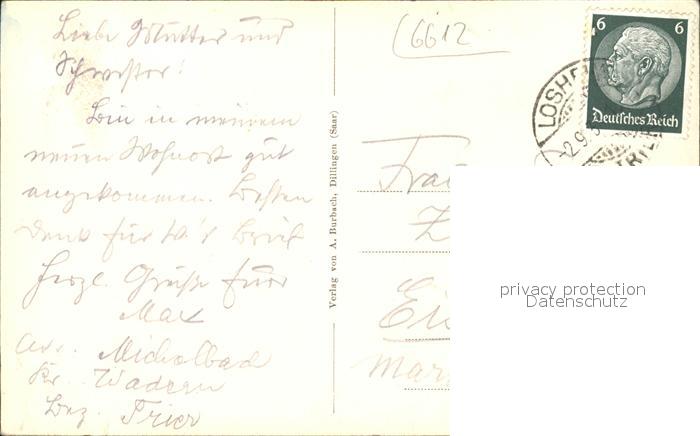 Liebe Mutter und
Schwester!
Bin in meinem
neuen Wohnort gut
angekommen. Besten
Dank für Brief
Herzl. Grüße Euer
Max
Michelbach
Kr. Wadern
Bez. Trier
Verlag von A. Burbach, Dillingen (Saar)
6612
6 6
Deutsches Reich
LOSHE
TRIE
-2.9.3
Frau
Z
Ei
Mar
privacy protection
Datenschutz